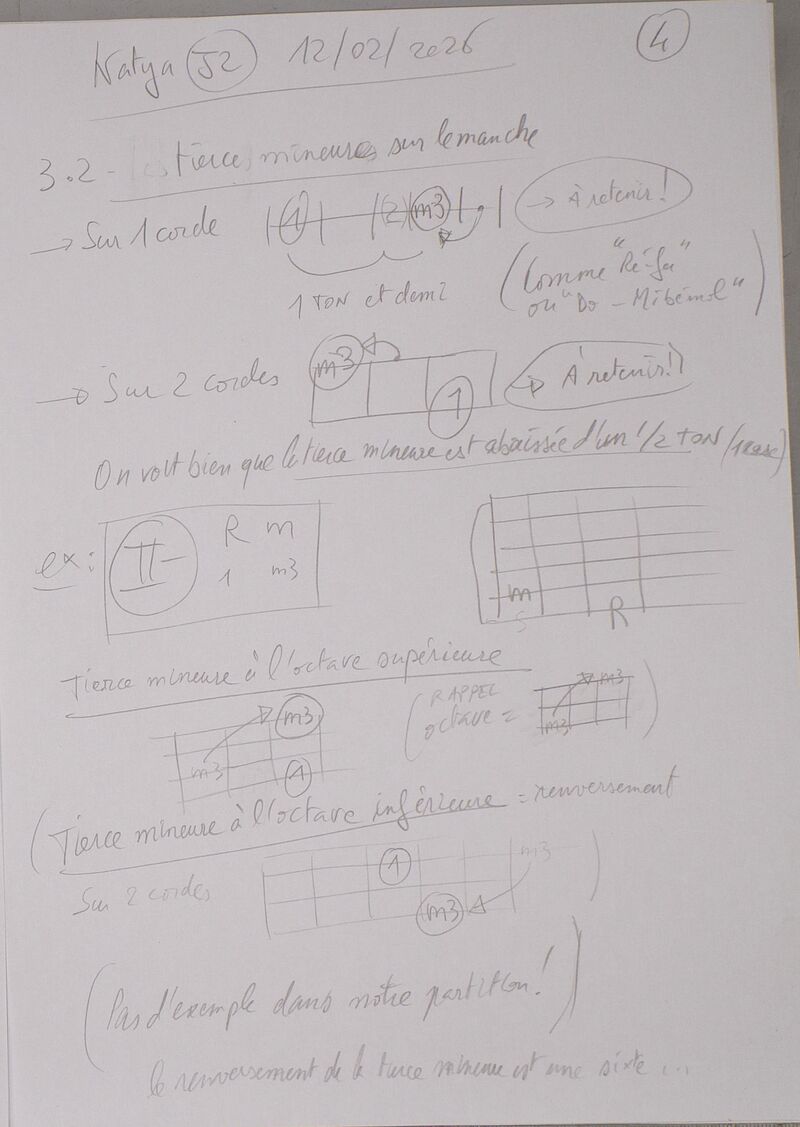 Natya J2 12/02/2026 4
3.2 - Les tierces mineures sur le manche
→ Sur 1 corde 1 (2) m3 → À retenir !
1 TON et demi (Comme "Ré-fa"
ou "Do - Mi bémol")
→ Sur 2 cordes m3 1 → À retenir !
On voit bien que la tierce mineure est abaissée d'un 1/2 TON (1 case)
ex : II- R m
1 m3
m
S R
Tierce mineure à l'octave supérieure
m3 m3 1 (RAPPEL octave = m3 m3)
(Tierce mineure à l'octave inférieure = renversement
Sur 2 cordes 1 m3 m3 )
(Pas d'exemple dans notre partition !)
le renversement de la tierce mineure est une sixte ...